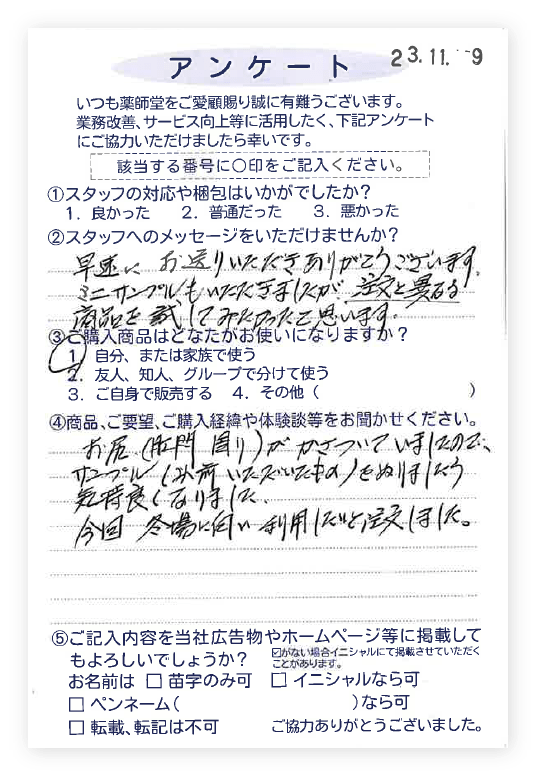 アンケート
23.11.-9
いつも薬師堂をご愛顧賜り誠に有難うございます。
業務改善、サービス向上等に活用したく、下記アンケート
にご協力いただけましたら幸いです。
該当する番号に〇印をご記入ください。
①スタッフの対応や梱包はいかがでしたか?
1. 良かった 2. 普通だった 3. 悪かった
②スタッフへのメッセージをいただけませんか?
早速に お送りいただきありがとうございます。
ミニサンプルもいただきましたが 注文と異なる
商品を試してみたかったと思います。
③ご購入商品はどなたがお使いになりますか?
1. 自分、または家族で使う
2. 友人、知人、グループで分けて使う
3. ご自身で販売する 4. その他( )
④商品、ご要望、ご購入経緯や体験談等をお聞かせください。
お尻(肛門周り)が かさついていましたので、
サンプル(以前いただいた中の)をぬりましたら
気持良くなりました。
今回 冬場に向い 利用したいと注文しました。
⑤ご記入内容を当社広告物やホームページ等に掲載して
もよろしいでしょうか? ☑がない場合イニシャルにて掲載させていただく
ことがあります。
お名前は □ 苗字のみ可 □ イニシャルなら可
□ ペンネーム( )なら可
□ 転載、転記は不可 ご協力ありがとうございました。